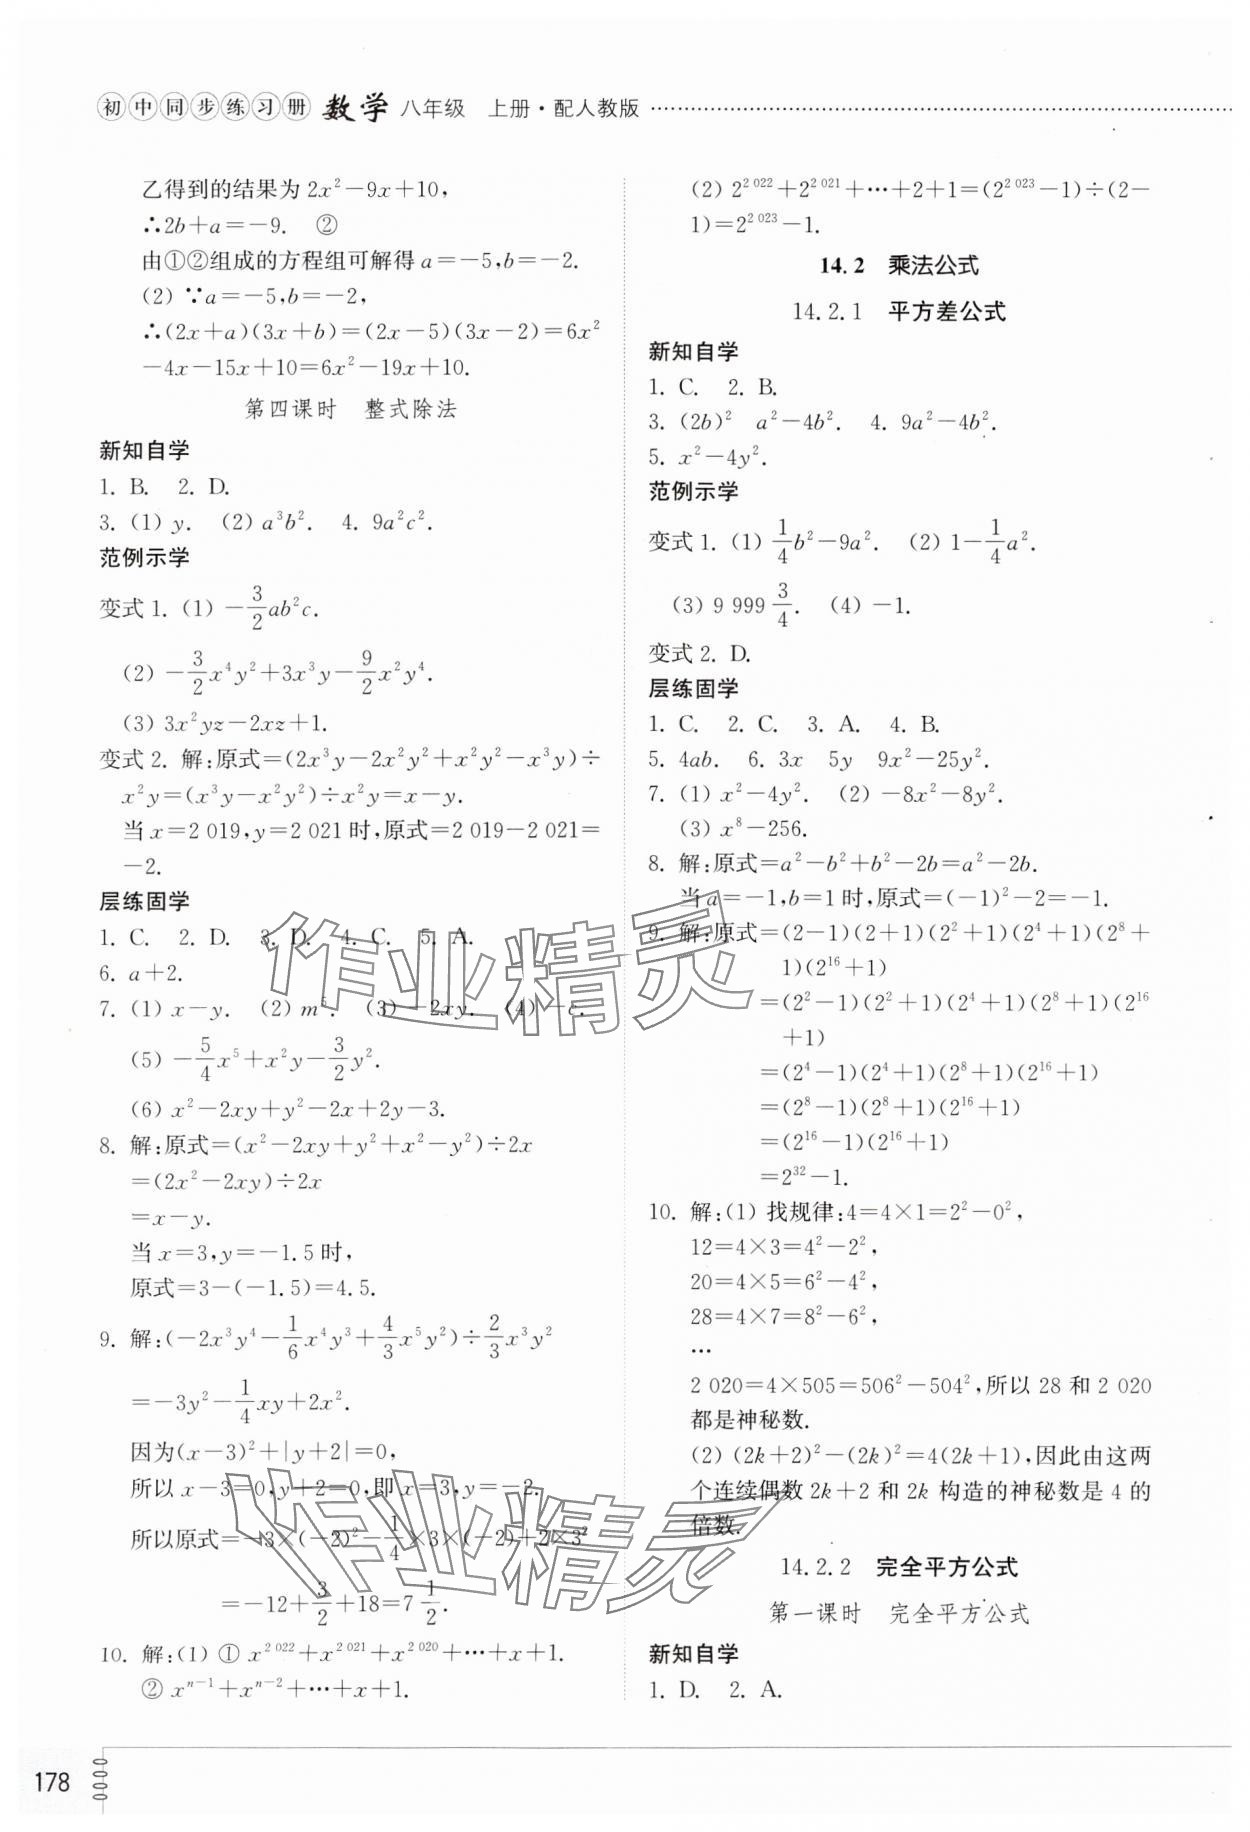 初中同步练习册 数学 八年级 上册·配人教版
乙得到的结果为 2x²－9x＋10，
∴2b＋a＝－9. ②
由①②组成的方程组可解得 a＝－5，b＝－2.
(2) ∵a＝－5，b＝－2，
∴(2x＋a)(3x＋b)＝(2x－5)(3x－2)＝6x²
－4x－15x＋10＝6x²－19x＋10.
第四课时 整式除法
新知自学
1. B. 2. D.
3. (1) y. (2) a³b². 4. 9a²c².
范例示学
变式 1. (1) －3/2ab²c.
(2) －3/2x⁴y²＋3x³y－9/2x²y⁴.
(3) 3x²yz－2xz＋1.
变式 2. 解：原式＝(2x³y－2x²y²＋x²y²－x³y)÷
x²y＝(x³y－x²y²)÷x²y＝x－y.
当 x＝2 019，y＝2 021 时，原式＝2 019－2 021＝
－2.
层练固学
1. C. 2. D. 3. D. 4. C. 5. A.
6. a＋2.
7. (1) x－y. (2) m⁵. (3) －2xy. (4) －c.
(5) －5/4x⁵＋x²y－3/2y².
(6) x²－2xy＋y²－2x＋2y－3.
8. 解：原式＝(x²－2xy＋y²＋x²－y²)÷2x
＝(2x²－2xy)÷2x
＝x－y.
当 x＝3，y＝－1.5 时，
原式＝3－(－1.5)＝4.5.
9. 解：(－2x³y⁴－1/6x⁴y³＋4/3x⁵y²)÷2/3x³y²
＝－3y²－1/4xy＋2x².
因为(x－3)²＋|y＋2|＝0，
所以 x－3＝0，y＋2＝0，即 x＝3，y＝－2.
所以原式＝－3×(－2)²－1/4×3×(－2)＋2×3²
＝－12＋3/2＋18＝7 1/2.
10. 解：(1) ① x^2 022＋x^2 021＋x^2 020＋…＋x＋1.
② xⁿ⁻¹＋xⁿ⁻²＋…＋x＋1.
(2) 2^2 022＋2^2 021＋…＋2＋1＝(2^2 023－1)÷(2－
1)＝2^2 023－1.
14.2 乘法公式
14.2.1 平方差公式
新知自学
1. C. 2. B.
3. (2b)² a²－4b². 4. 9a²－4b².
5. x²－4y².
范例示学
变式 1. (1) 1/4b²－9a². (2) 1－1/4a².
(3) 9 999 3/4. (4) －1.
变式 2. D.
层练固学
1. C. 2. C. 3. A. 4. B.
5. 4ab. 6. 3x 5y 9x²－25y².
7. (1) x²－4y². (2) －8x²－8y².
(3) x⁸－256.
8. 解：原式＝a²－b²＋b²－2b＝a²－2b.
当 a＝－1，b＝1 时，原式＝(－1)²－2＝－1.
9. 解：原式＝(2－1)(2＋1)(2²＋1)(2⁴＋1)(2⁸＋
1)(2¹⁶＋1)
＝(2²－1)(2²＋1)(2⁴＋1)(2⁸＋1)(2¹⁶
＋1)
＝(2⁴－1)(2⁴＋1)(2⁸＋1)(2¹⁶＋1)
＝(2⁸－1)(2⁸＋1)(2¹⁶＋1)
＝(2¹⁶－1)(2¹⁶＋1)
＝2³²－1.
10. 解：(1) 找规律：4＝4×1＝2²－0²，
12＝4×3＝4²－2²，
20＝4×5＝6²－4²，
28＝4×7＝8²－6²，
…
2 020＝4×505＝506²－504²，所以 28 和 2 020
都是神秘数.
(2) (2k＋2)²－(2k)²＝4(2k＋1)，因此由这两
个连续偶数 2k＋2 和 2k 构造的神秘数是 4 的
倍数.
14.2.2 完全平方公式
第一课时 完全平方公式
新知自学
1. D. 2. A.
作业精灵
作业精灵
178